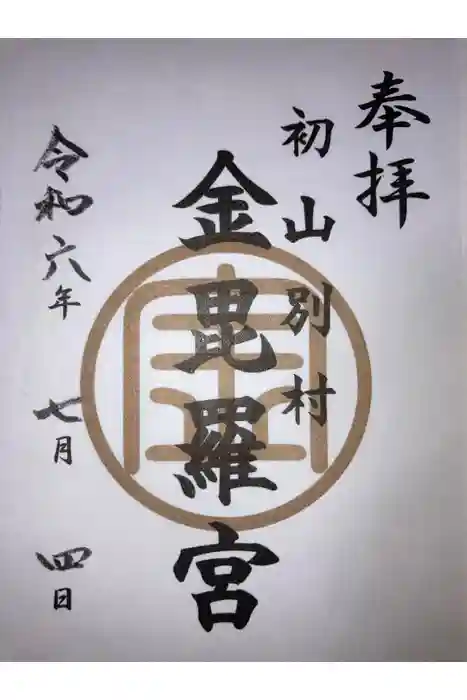 奉拝
初山別村
金毘羅宮
令和六年七月四日